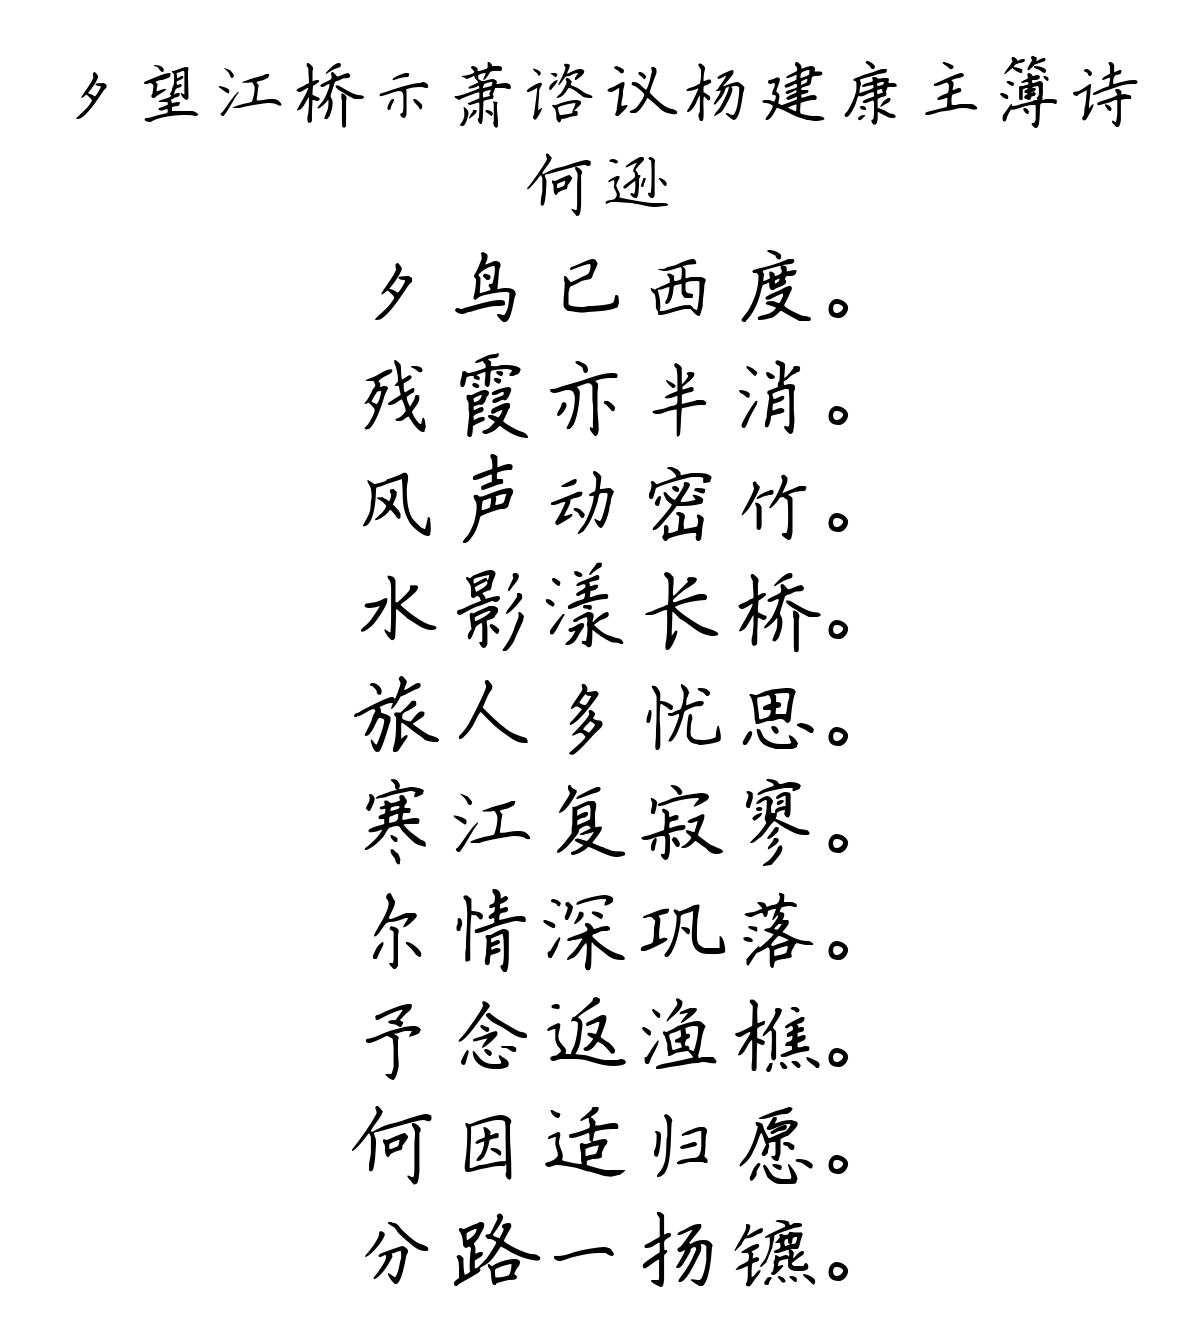 夕望江桥示萧谘议杨建康主簿诗
何逊
夕鸟已西度。
残霞亦半消。
风声动密竹。
水影漾长桥。
旅人多忧思。
寒江复寂寥。
尔情深巩落。
予念返渔樵。
何因适归愿。
分路一扬镳。